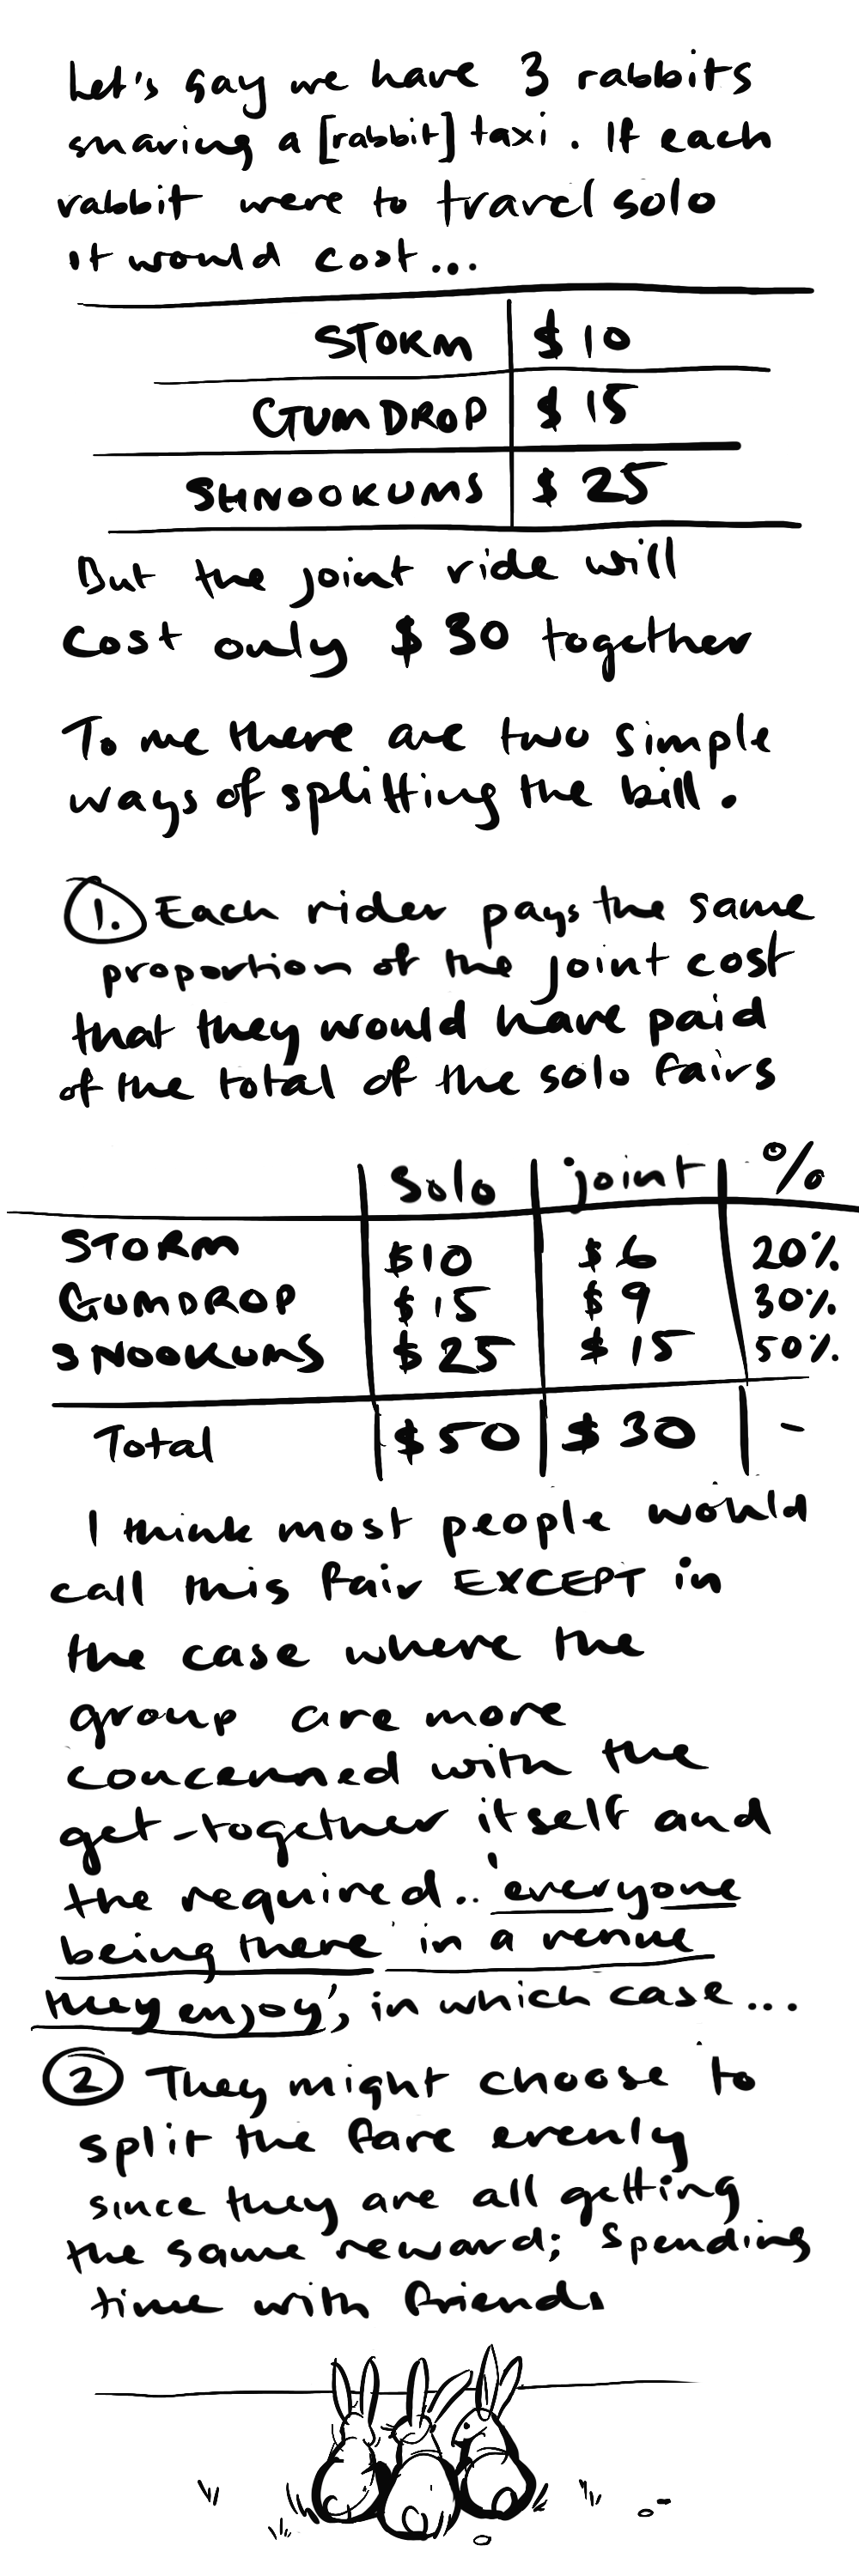 Let's say we have 3 rabbits
sharing a [rabbit] taxi. If each
rabbit were to travel solo
it would cost...
STORM $10
GUMDROP $15
SHNOOKUMS $25
But the joint ride will
cost only $30 together
To me there are two simple
ways of splitting the bill.
1. Each rider pays the same
proportion of the joint cost
that they would have paid
of the total of the solo fairs
Solo joint %
STORM $10 $6 20%
GUMDROP $15 $9 30%
SNOOKUMS $25 $15 50%
Total $50 $30 -
I think most people would
call this fair EXCEPT in
the case where the
group are more
concerned with the
get-together itself and
the required.. 'everyone
being there in a venue
they enjoy', in which case...
2 They might choose to
split the fare evenly
since they are all getting
the same reward; spending
time with friends